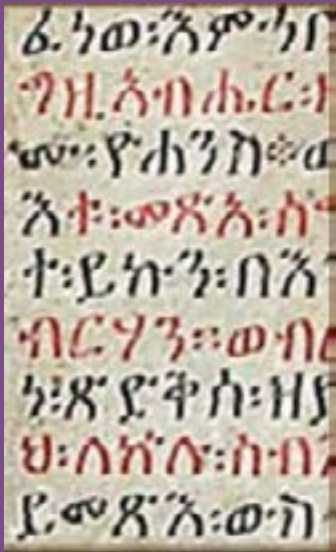 ፈነወ፡እምነ
ግዚአብሔር፡
ሙ፡ዮሐንስ፨ወ
እቱ፡መጽአ፡ሰ
ተ፡ይኩን፡በእ
ብርሃን።ወብ
ነ፡ጽድቅሰ፡ዘያ
ህ፡ለኵሉ፡ስብ
ይመጽእ፡ውስ